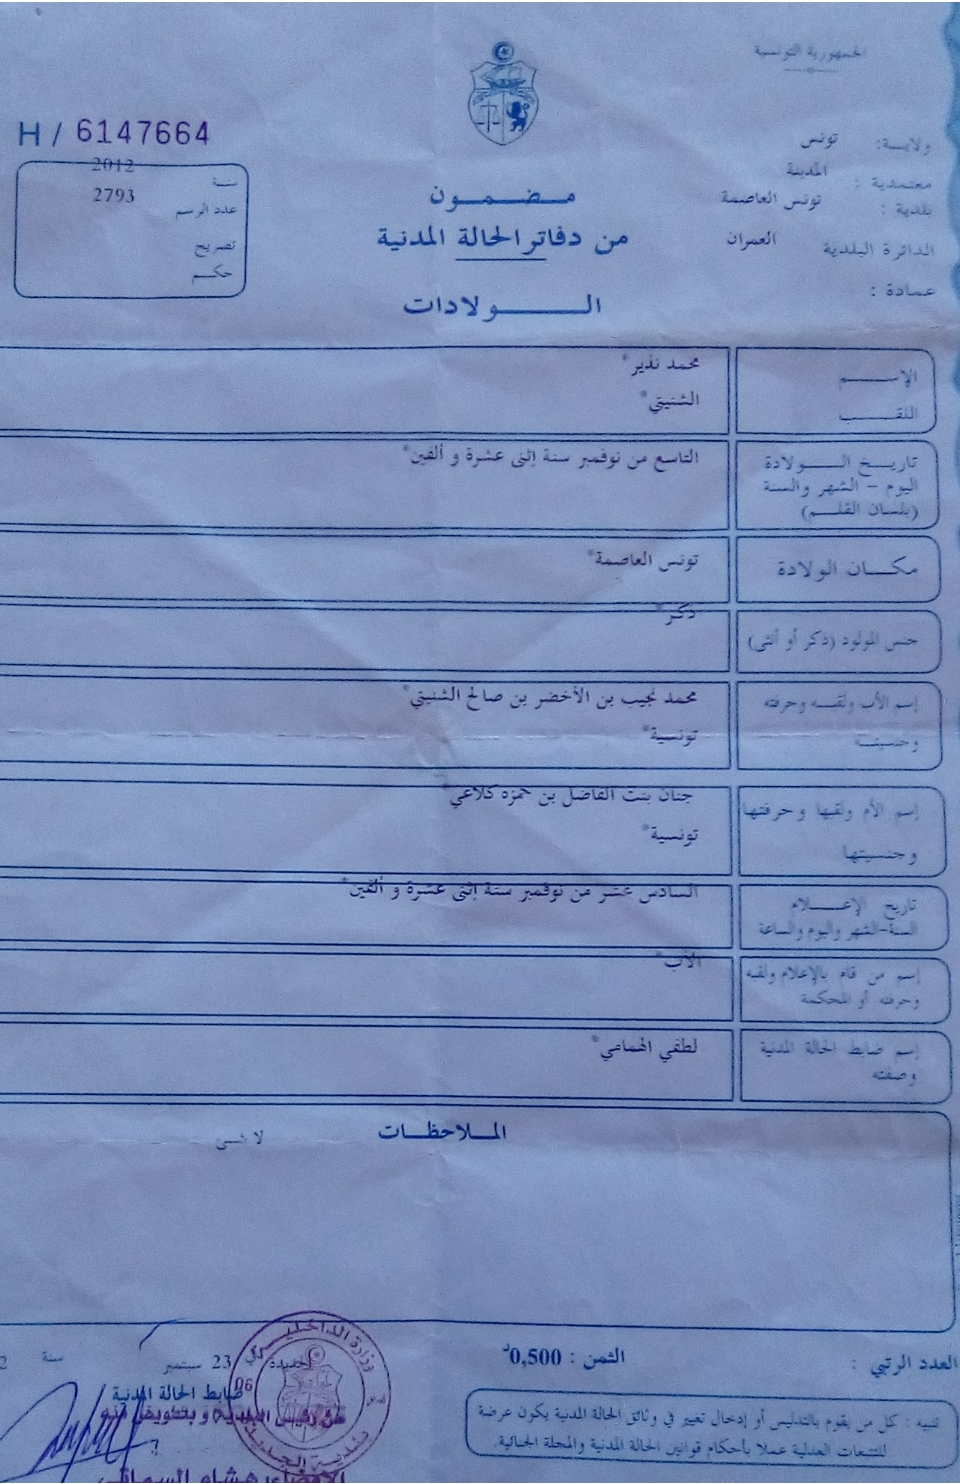 الجمهورية التونسية
H / 6147664
ولاية: تونس
معتمدية : المدينة
بلدية : تونس العاصمة
الدائرة البلدية العمران
عمادة :
سنة 2012
عدد الرسم 2793
تصريح
حكم
مضمون
من دفاتر الحالة المدنية
الولادات
الإسم محمد نذير*
اللقب الشنيتي*
تاريخ الولادة التاسع من نوفمبر سنة إثنى عشرة و ألفين*
اليوم - الشهر والسنة
(بلسان القلم)
مكان الولادة تونس العاصمة*
جنس المولود (ذكر أو أنثى) ذكر*
إسم الأب ولقبه وحرفته محمد نجيب بن الأخضر بن صالح الشنيتي*
وجنسيته تونسية*
إسم الأم ولقبها وحرفتها جنان بنت الفاضل بن حمزه كلاعي*
وجنسيتها تونسية*
تاريخ الإعلام السادس عشر من نوفمبر سنة إثنى عشرة و ألفين*
السنة-الشهر واليوم والساعة
إسم من قام بالإعلام ولقبه الأب*
وحرفته أو المحكمة
إسم ضابط الحالة المدنية لطفي الهمامي*
وصفته
الملاحظات
لا شئ
العدد الرتبي :
الثمن : 0,500د
في 23 سبتمبر سنة
ضابط الحالة المدنية
عن رئيس البلدية و بتفويض منه
الإمضاء: هشام السماتي
وزارة الداخلية
06
تنبيه : كل من يقوم بالتدليس أو إدخال تغيير في وثائق الحالة المدنية يكون عرضة
للتتبعات العدلية عملا بأحكام قوانين الحالة المدنية والمجلة الجنائية.